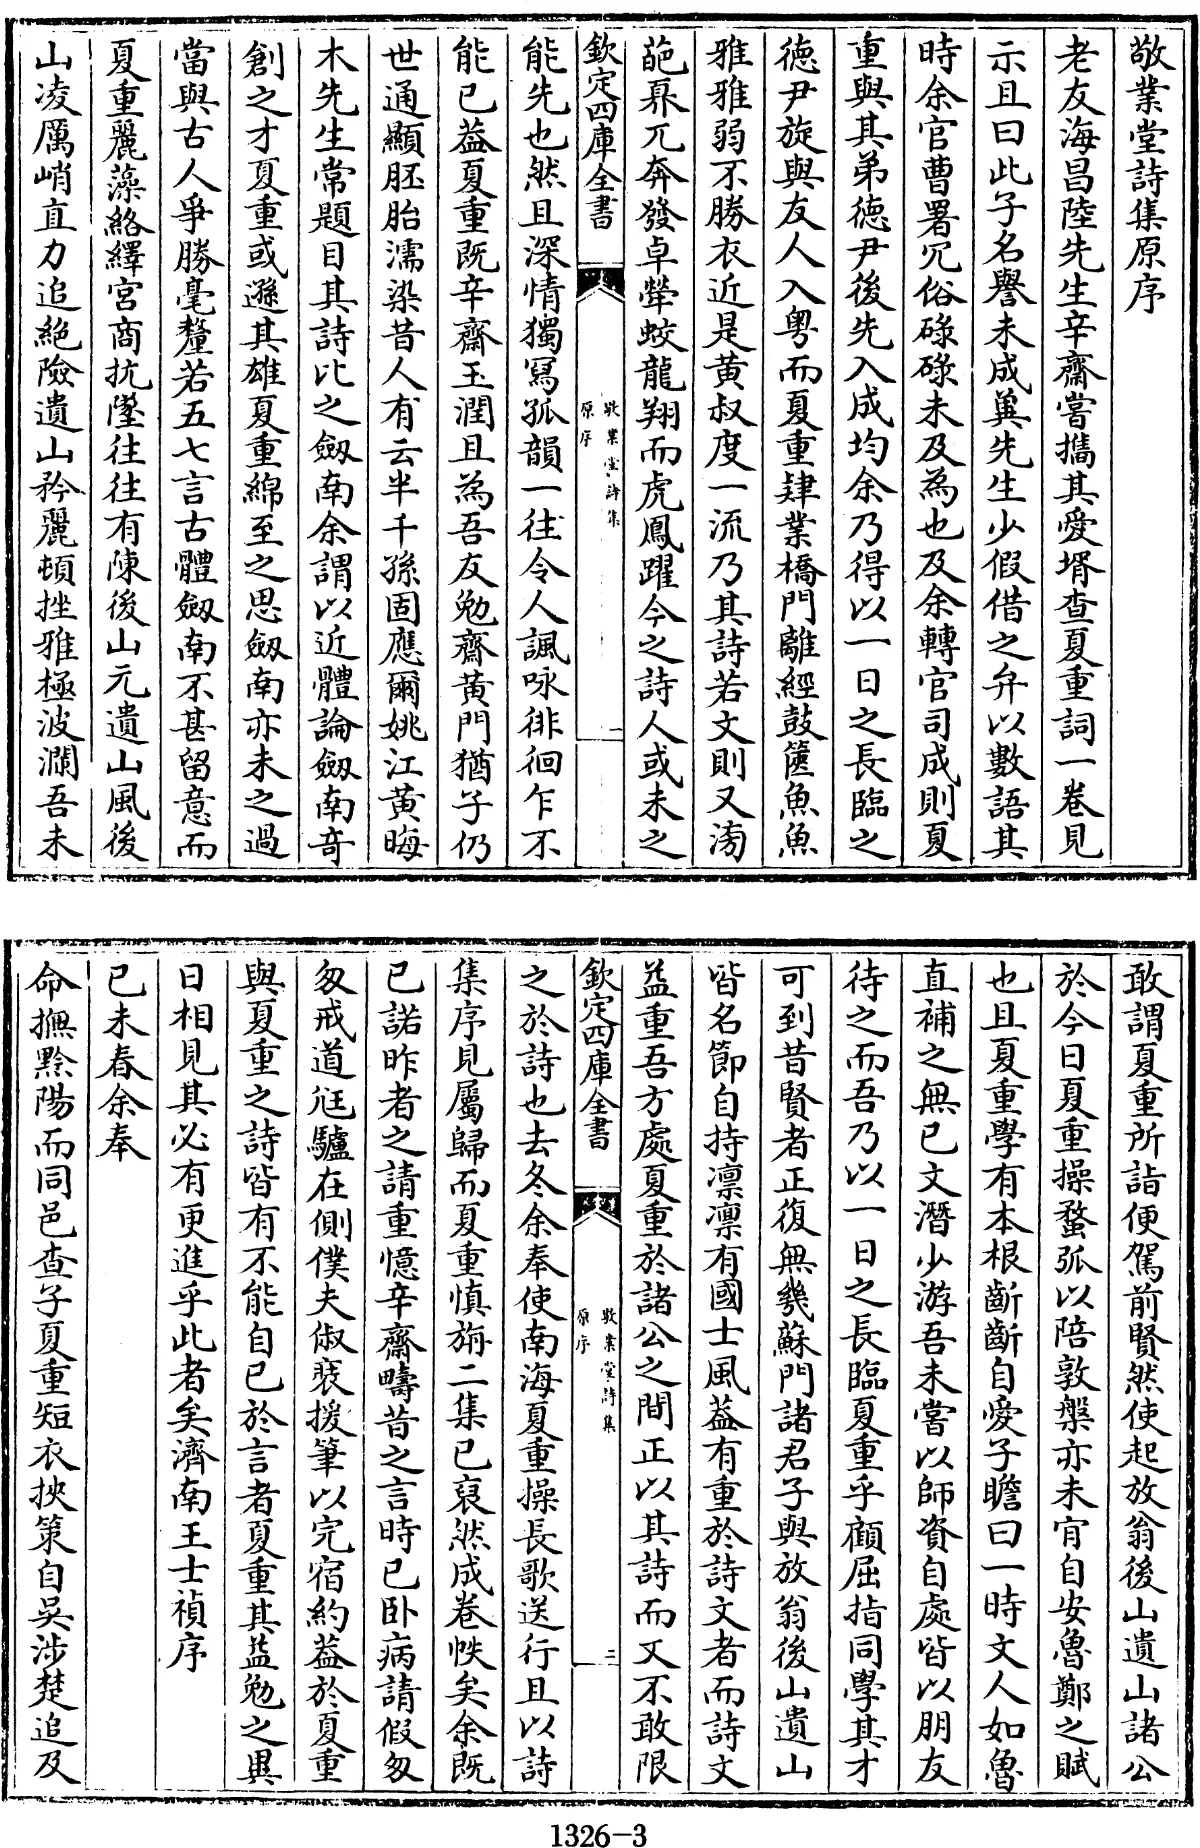 敬業堂詩集原序
老友海昌陸先生辛齋嘗攜其愛壻查夏重詞一卷見
示且曰此子名譽未成冀先生少假借之弁以數語其
時余官曹署冗俗碌碌未及為也及余轉官司成則夏
重與其弟德尹後先入成均余乃得以一日之長臨之
德尹旋與友人入粤而夏重肄業橋門離經鼓篋魚魚
雅雅弱不勝衣近是黄叔度一流乃其詩若文則又滂
葩奡兀奔發卓犖蛟龍翔而虎鳳躍今之詩人或未之
欽定四庫全書
敬業堂詩集
原序
一
能先也然且深情獨寫孤韻一往令人諷咏徘徊乍不
能已葢夏重既辛齋玉潤且為吾友勉齋黄門猶子仍
世通顯胚胎濡染昔人有云半千孫固應爾姚江黄晦
木先生常題目其詩比之劔南余謂以近體論劔南竒
創之才夏重或遜其雄夏重綿至之思劔南亦未之過
當與古人爭勝毫釐若五七言古體劔南不甚留意而
夏重麗藻絡繹宫商抗墜往往有陳後山元遺山風後
山凌厲峭直力追絶險遺山矜麗頓挫雅極波瀾吾未
敢謂夏重所詣便駕前賢然使起放翁後山遺山諸公
於今日夏重操蝥弧以陪敦槃亦未肯自安魯鄭之賦
也且夏重學有本根齗齗自愛子瞻曰一時文人如魯
直補之無已文潛少游吾未嘗以師資自處皆以朋友
待之而吾乃以一日之長臨夏重乎顧屈指同學其才
可到昔賢者正復無幾蘇門諸君子與放翁後山遺山
皆名節自持凛凛有國士風葢有重於詩文者而詩文
益重吾方處夏重於諸公之間正以其詩而又不敢限
欽定四庫全書
敬業堂詩集
原序
二
之於詩也去冬余奉使南海夏重操長歌送行且以詩
集序見屬歸而夏重慎旃二集已裒然成卷帙矣余既
已諾昨者之請重憶辛齋疇昔之言時已卧病請假匆
匆戒道尩驢在側僕夫俶裝援筆以完宿約葢於夏重
與夏重之詩皆有不能自已於言者夏重其益勉之異
日相見其必有更進乎此者矣濟南王士禎序
已未春余奉
命撫黔陽而同邑查子夏重短衣挾策自吳涉楚追及
1326-3